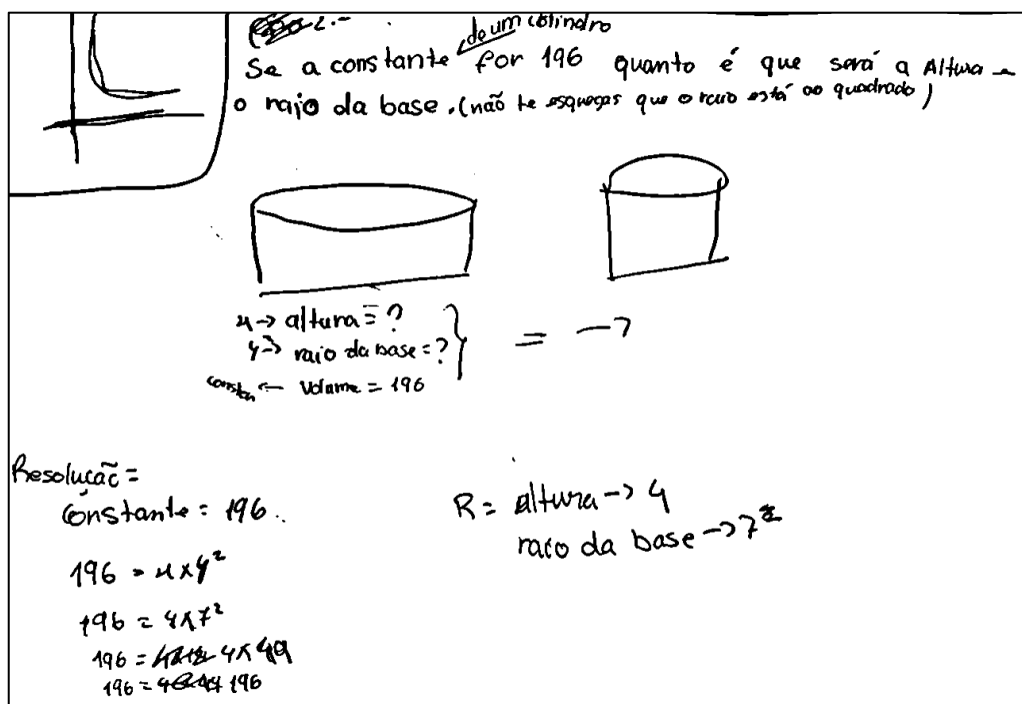 2.-
de um cilindro
Se a constante for 196 quanto é que será a Altura e
o raio da base. (não te esqueças que o raio está ao quadrado)
x → altura = ?
y → raio da base = ?
← Volume = 196
= →
Resolução =
Constante = 196.
196 = x × y²
196 = 4 × 7²
196 = 4 × 49
196 = 196
R = altura → 4
raio da base → 7